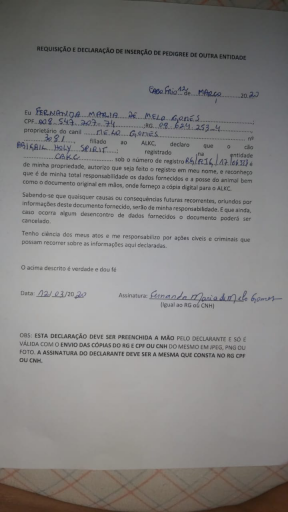 REQUISIÇÃO E DECLARAÇÃO DE INSERÇÃO DE PEDIGREE DE OUTRA ENTIDADE
CABO FRIO, 12 de MARCO 2020
Eu FERNANDA MARIA DE MELO GOMES
CPF 008.547.707-74 RG 09.624.253-4
proprietário do canil MELO GOMES nº
3081 filiado ao ALKC, declaro que o cão
ABIGAIL HOLY SPIRIT registrado na entidade
CBKC sob o número de registro
de minha propriedade, autorizo que seja feito o registro em meu nome, e reconheço
que é de minha total responsabilidade os dados fornecidos e a posse do animal bem
como o documento original em mãos, onde forneço a cópia digital para o ALKC.
Sabendo-se que quaisquer causas ou consequências futuras recorrentes, oriundos por
informações desta documento fornecido, serão de minha responsabilidade. E que ainda,
caso ocorra algum desencontro de dados fornecidos o documento poderá ser
cancelado.
Tenho ciência dos meus atos e me responsabilizo por ações cíveis e criminais que
possam recorrer sobre as informações aqui declaradas.
O acima descrito é verdade e dou fé
Data: 12/03/2020 Assinatura: Fernanda Maria de Melo Gomes
(Igual ao RG ou CNH)
OBS: ESTA DECLARAÇÃO DEVE SER PREENCHIDA A MÃO PELO DECLARANTE E SÓ É
VÁLIDA COM O ENVIO DAS CÓPIAS DO RG E CPF OU CNH DO MESMO EM JPEG, PNG OU
FOTO. A ASSINATURA DO DECLARANTE DEVE SER A MESMA QUE CONSTA NO RG CPF
OU CNH.